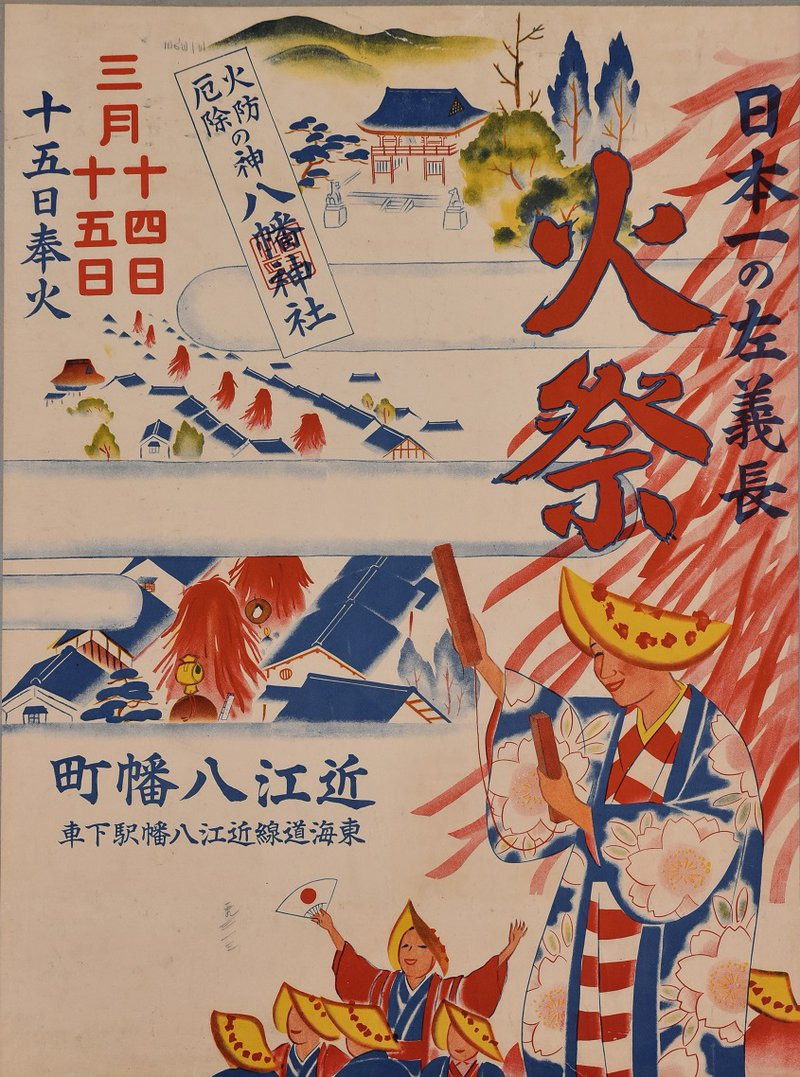 日本一の左義長
火祭
火防の神
厄除
八幡神社
三月十四日
十五日
十五日奉火
町幡八江近
車下駅幡八江近線道海東